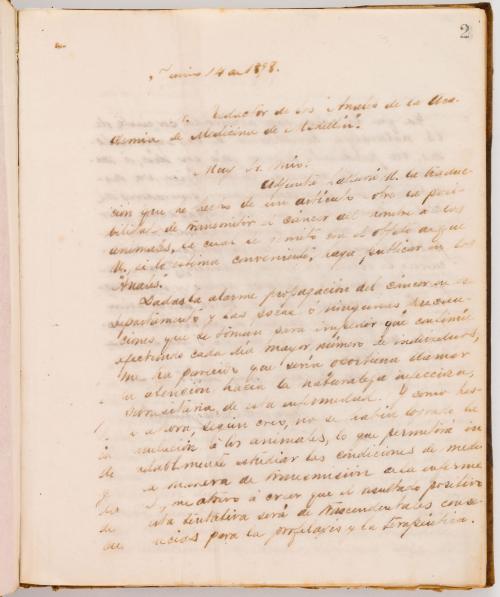 2
Junio 14 de 1898.
Redactor de los "Anales de la Aca-
demia de Medicina de Medellín".
Muy Sr. mío:
Adjunto hallará U. la traduc-
ción que he hecho de un artículo sobre la posi-
bilidad de transmitir el cáncer del hombre a los
animales, la cual le remito con el objeto de que
U., si lo estima conveniente, haya publicar en los
"Anales".
Dada la alarme propagación del cáncer en el
departamento y las pocas ó ningunas precau-
ciones que se toman para impedir que continúe
efectuando cada día mayor número de individuos,
me ha parecido que sería oportuno llamar
la atención hacia la naturaleza infecciosa,
parasitaria, de esta enfermedad. Y como has-
ta ahora, según creo, no se había logrado la
inoculación á los animales, lo que permitirá in-
dudablemente estudiar las condiciones de medio
y manera de transmisión de la enferme-
me atrevo á creer que el resultado positivo
de esta tentativa será de trascendentales conse-
cuencias para la profilaxis y la terapéutica.